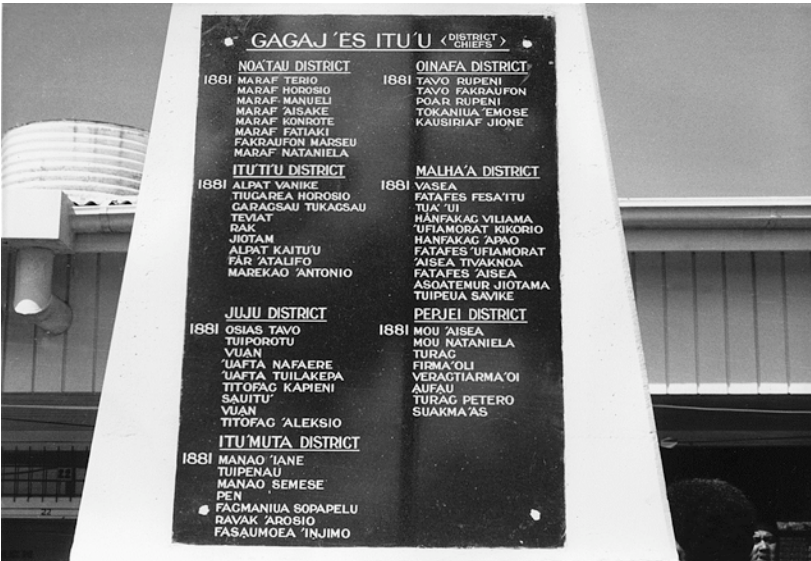 GAGAJ 'ES ITU'U <DISTRICT CHIEFS>
NOA'TAU DISTRICT
1881 MARAF TERIO
MARAF HOROSIO
MARAF MANUELI
MARAF 'AISAKE
MARAF KONROTE
MARAF FATIAKI
FAKRAUFON MARSEU
MARAF NATANIELA
ITU'TI'U DISTRICT
1881 ALPAT VANIKE
TIUGAREA HOROSIO
GARAGSAU TUKAGSAU
TEVIAT
RAK
JIOTAM
ALPAT KAITU'U
FÄR 'ATALIFO
MAREKAO 'ANTONIO
JUJU DISTRICT
1881 OSIAS TAVO
TUIPOROTU
VUẠN
'UAFTA NAFAERE
'UAFTA TUILAKEPA
TITOFAG KAPIENI
SẠUITU'
VUẠN
TITOFAG 'ALEKSIO
ITU'MUTA DISTRICT
1881 MANAO 'IANE
TUIPENAU
MANAO SEMESE
PEN
FAGMANIUA SOPAPELU
RAVAK 'AROSIO
FASẠUMOEA 'INJIMO
OINAFA DISTRICT
1881 TAVO RUPENI
TAVO FAKRAUFON
POAR RUPENI
TOKANIUA 'EMOSE
KAUSIRIAF JIONE
MALHA'A DISTRICT
1881 VASEA
FATAFES FESA'ITU
TUA' 'UI
HÄNFAKAG VILIAMA
'UFIAMORAT KIKORIO
HANFAKAG 'APAO
FATAFES 'UFIAMORAT
'AISEA TIVAKNOA
FATAFES 'AISEA
ASOATEMUR JIOTAMA
TUIPEUA SAVIKE
PEPJEI DISTRICT
1881 MOU 'AISEA
MOU NATANIELA
TURAG
FIRMA'OLI
VERAGTIARMA'OI
ẠUFAU
TURAG PETERO
SUAKMA'AS
22